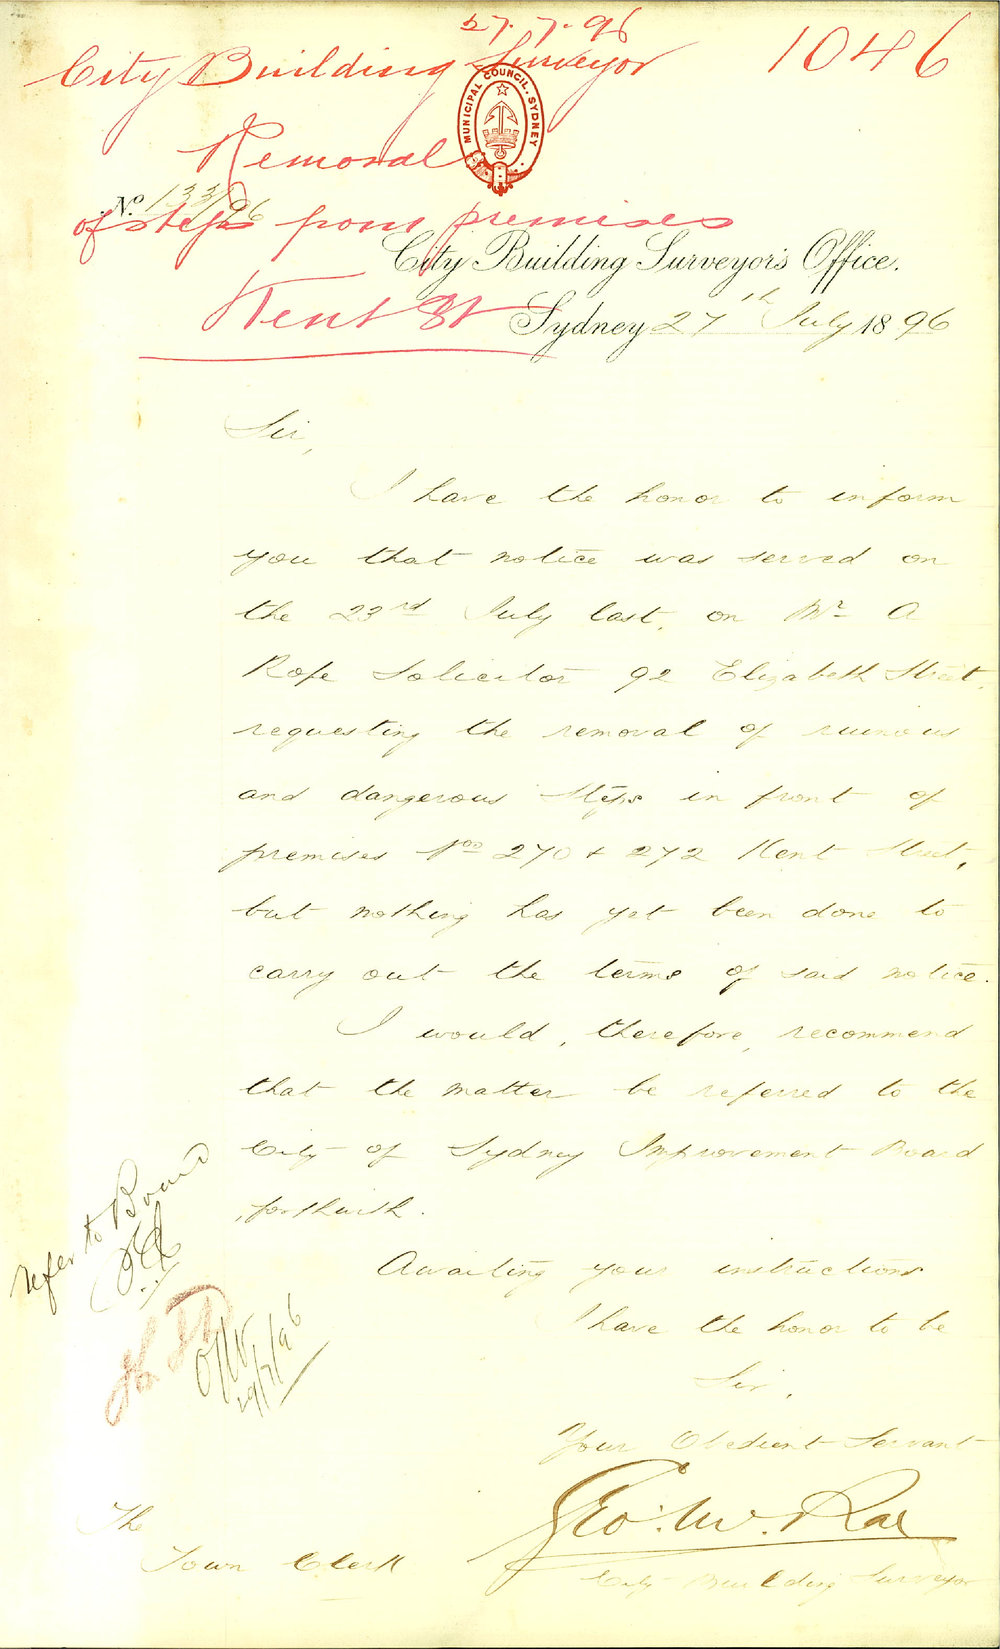 27.7.96
City Building Surveyor
1046
MUNICIPAL COUNCIL. SYDNEY
Removal
No. 133/96
of steps from premises
City Building Surveyor's Office.
Kent St
Sydney 27th July 1896
Sir,
I have the honor to inform
you that notice was served on
the 23rd July last, on Mr A
Rofe Solicitor 92 Elizabeth Street,
requesting the removal of ruinous
and dangerous Steps in front of
premises Nos 270 & 272 Kent Street,
but nothing has yet been done to
carry out the terms of said notice.
I would, therefore, recommend
that the matter be referred to the
City of Sydney Improvement Board
forthwith.
Refer to Board
Awaiting your instructions
I have the honor to be
Sir,
29/7/96
Your Obedient Servant
Geo: McRae
City Building Surveyor
The
Town Clerk